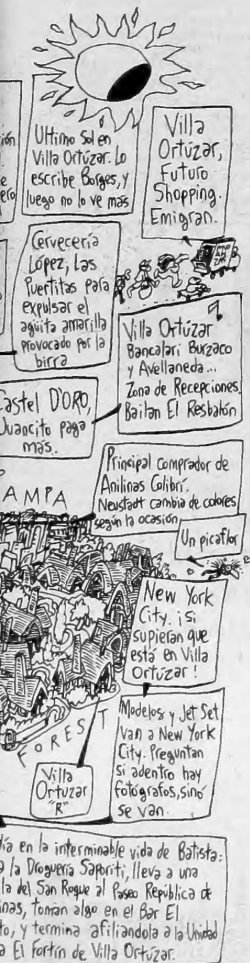 ión
e
ero
Ultimo Sol en
Villa Ortúzar. Lo
escribe Borges, y
luego no lo ve más
Villa
Ortúzar,
Futuro
Shopping.
Emigran.
Cervecería
López, Las
Puertitas para
expulsar el
agüita amarilla
provocado por la
birra
Villa Ortúzar
Bancalari Burzaco
y Avellaneda...
Zona de Recepciones.
Bailan El Resbalón
Castel D'ORO,
Juancito paga
más.
Principal comprador de
Anilinas Colibrí.
Neustadt cambia de colores
según la ocasión
AMPA
Un picaflor
New York
City. ¡Si
supieran que
está en Villa
Ortúzar!
Modelos y Jet Set
van a New York
City. Preguntan
si adentro hay
fotógrafos, sinó
se van.
FOREST
Villa
Ortuzar
"R"
día en la interminable vida de Batista:
a la Droguería Saporiti, lleva a una
lla del San Roque al Paseo República de
inas, toman algo en el Bar El
to, y termina afiliandola a la Unidad
a El Fortín de Villa Ortúzar.